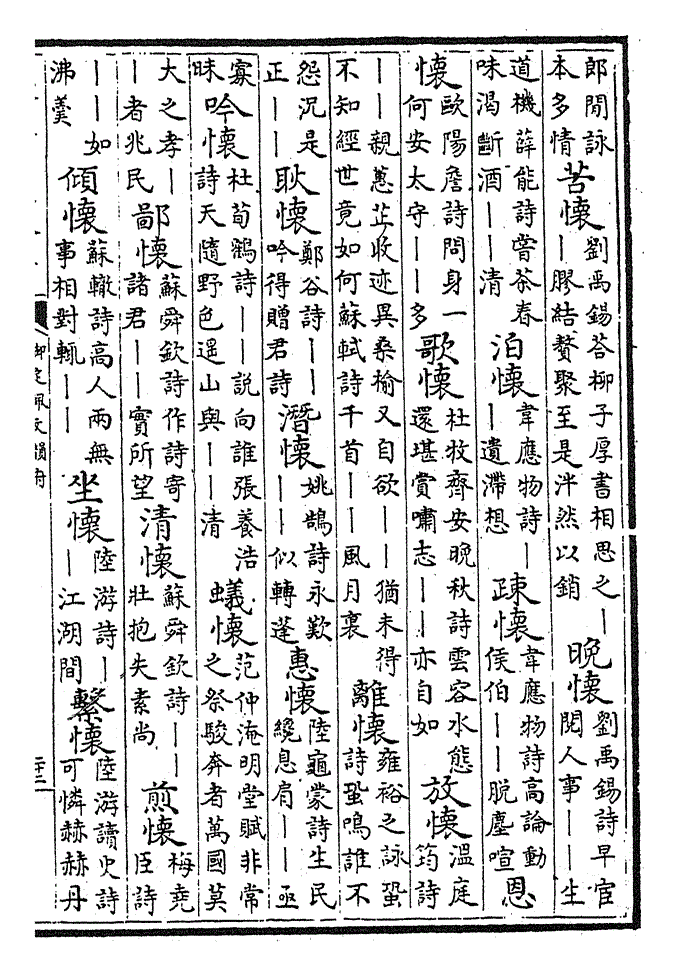 郎閒詠本多情苦懷劉禹錫荅柳子厚書相思之——膠結贅聚至是泮然以銷晚懷劉禹錫詩早宦閱人事——生
道機薛能詩嘗茶春味渴斷酒——清泊懷韋應物詩——遺滯想疎懷韋應物詩高論動侯伯——脫塵喧恩
懷歐陽詹詩問身一何安太守——多歌懷杜牧齊安晚秋詩雲容水態還堪賞嘯志——亦自如放懷溫庭筠詩
——親蕙芷收迹異桑榆又自欲——猶未得不知經世竟如何蘇軾詩千首——風月裏離懷雍裕之詠蛩詩蛩鳴誰不
怨況是正——耿懷鄭谷詩——吟得贈君詩潛懷姚鵠詩永歎——似轉蓬惠懷陸龜蒙詩生民纔息肩——亟
寡昧吟懷杜荀鶴詩——說向誰張養浩詩天隨野色遥山與——清蟻懷范仲淹明堂賦非常之祭駿奔者萬國莫
大之孝——者兆民鄙懷蘇舜欽詩作詩寄諸君——實所望清懷蘇舜欽詩——壯抱失素尚煎懷梅堯臣詩
——如沸羹傾懷蘇轍詩高人兩無事相對輒——坐懷陸游詩——江湖間繫懷陸游讀史詩可憐赫赫丹
御定佩文韻府